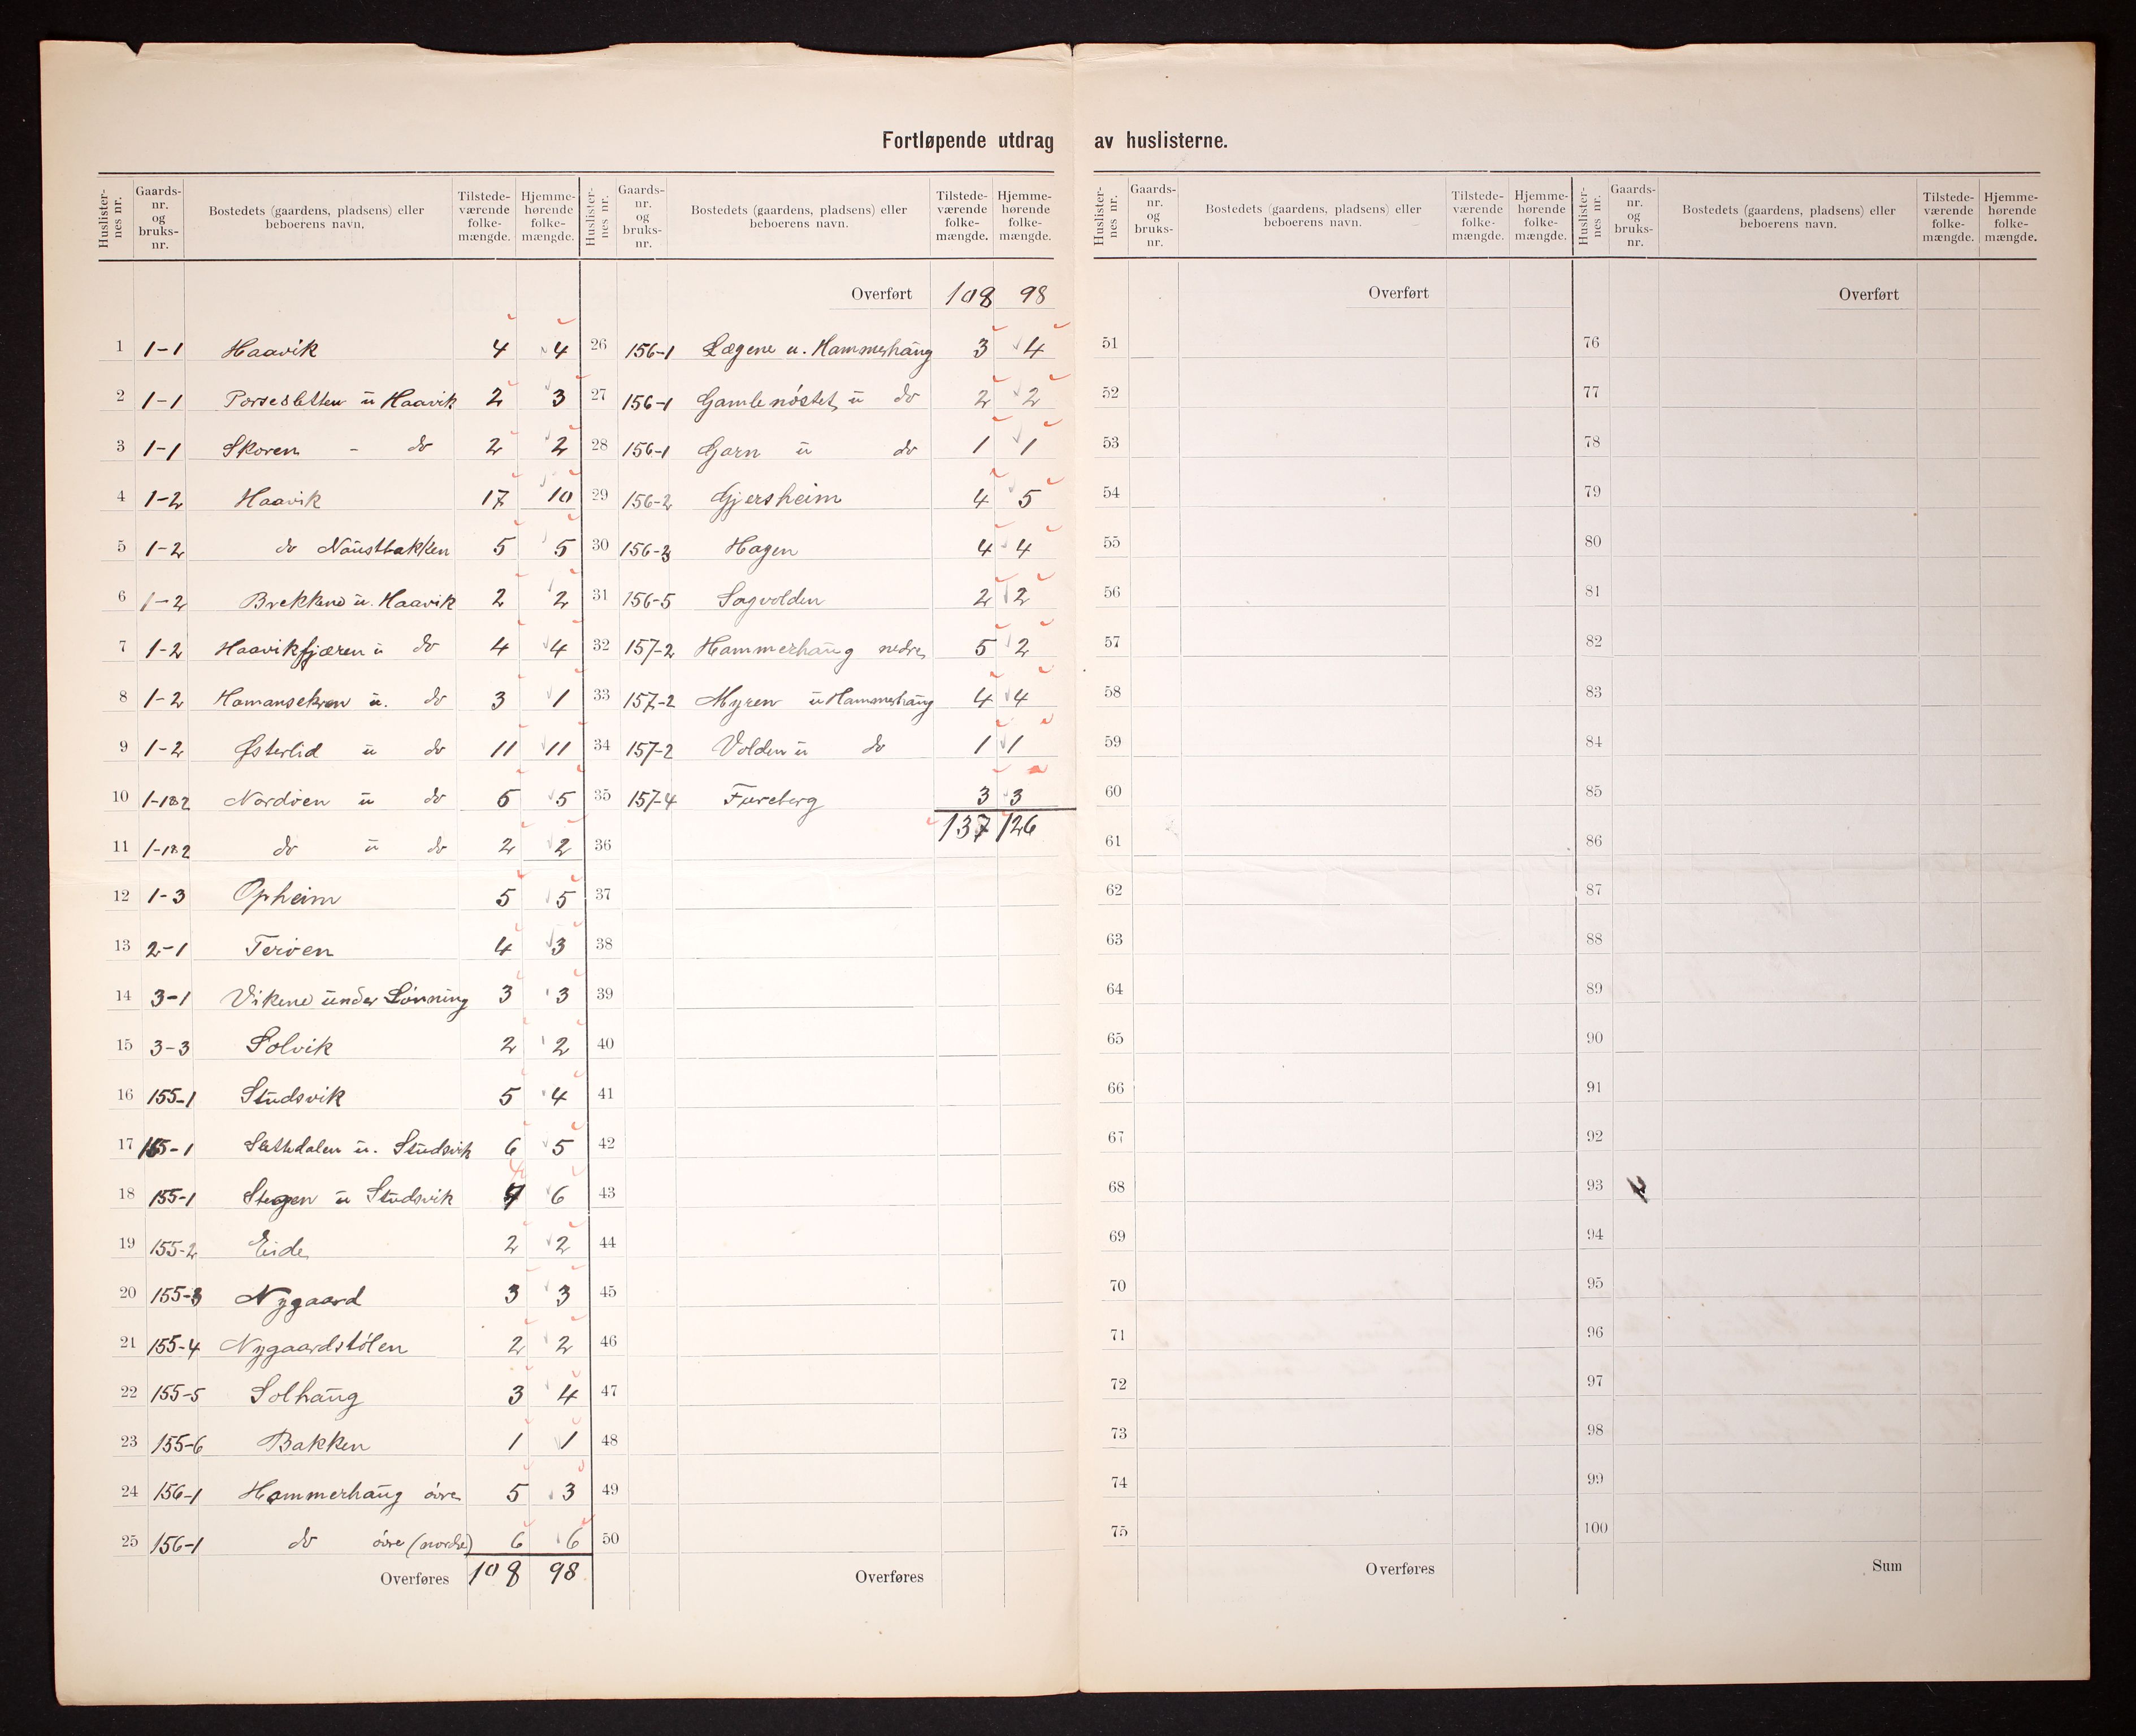 Fortløpende utdrag av huslisterne.
Huslister-nes nr. Gaards-nr. og bruks-nr. Bostedets (gaardens, pladsens) eller beboerens navn. Tilstede-værende folke-mængde. Hjemme-hørende folke-mængde.
1 1-1 Haavik 4 4
2 1-1 Porsesletten u Haavik 2 3
3 1-1 Skoren - do 2 2
4 1-2 Haavik 17 10
5 1-2 do Naustbakken 5 5
6 1-2 Brekkene u. Haavik 2 2
7 1-2 Haavikfjæren u do 4 4
8 1-2 Hamansekren u. do 3 1
9 1-2 Østerlid u do 11 11
10 1-1&2 Nordöen u do 5
11 1-1&2 do u do 2 2
12 1-3 Opheim 5 5
13 2-1 Teröen 4 3
14 3-1 Vikene under Lönning 3 3
15 3-3 Solvik 2 2
16 155-1 Studsvik 5 4
17 155-1 Slettedalen u. Studsvik 6 5
18 155-1 Stegen u Studsvik 6
19 155-2 Eide 2 2
20 155-3 Nygaard 3 3
21 155-4 Nygaardstölen 2 2
22 155-5 Solhaug 3 4
23 155-6 Bakken 1 1
24 156-1 Hammerhaug övre 5 3
25 156-1 do övre (nordre) 6 6
Overføres 108 98
Huslister-nes nr. Gaards-nr. og bruks-nr. Bostedets (gaardens, pladsens) eller beboerens navn. Tilstede-værende folke-mængde. Hjemme-hørende folke-mængde.
Overført 108 98
26 156-1 Lægene u. Hammerhaug 3 4
27 156-1 Gamlenöstet u do 2 2
28 156-1 Garn u do 1 1
29 156-2 Gjersheim 4 5
30 156-3 Hagen 4 4
31 156-5 Sagvolden 2 2
32 157-2 Hammerhaug nedre 5 2
33 157-2 Myren u Hammerhaug 4 4
34 157-2 Volden u do 1 1
35 157-4 Fureberg 3 3
137 126
36
37
38
39
40
41
42
43
44
45
46
47
48
49
50
Overføres
Huslister-nes nr. Gaards-nr. og bruks-nr. Bostedets (gaardens, pladsens) eller beboerens navn. Tilstede-værende folke-mængde. Hjemme-hørende folke-mængde.
Overført
51
52
53
54
55
56
57
58
59
60
61
62
63
64
65
66
67
68
69
70
71
72
73
74
75
Overføres
Huslister-nes nr. Gaards-nr. og bruks-nr. Bostedets (gaardens, pladsens) eller beboerens navn. Tilstede-værende folke-mængde. Hjemme-hørende folke-mængde.
Overført
76
77
78
79
80
81
82
83
84
85
86
87
88
89
90
91
92
93
94
95
96
97
98
99
100
Sum